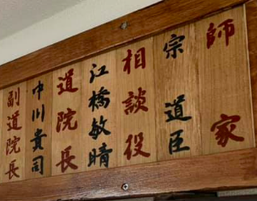 師家
宗 道臣
相談役
江橋敏晴
道院長
中川貴司
副道院長